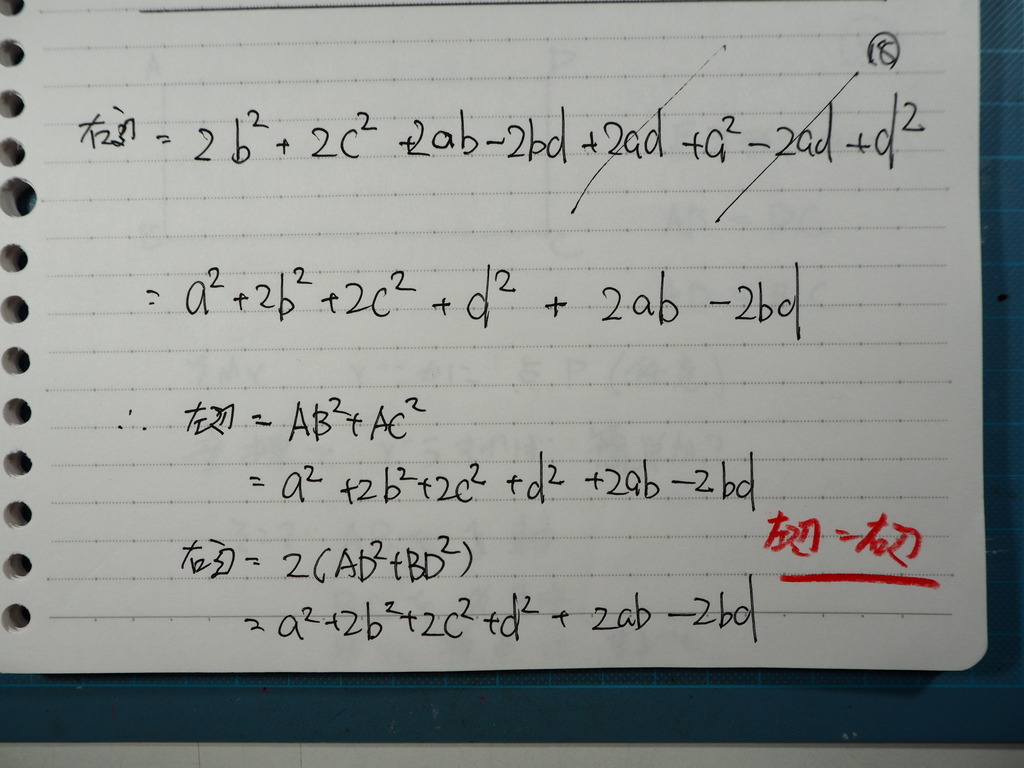 ⑱
右辺 = 2b² + 2c² + 2ab - 2bd + 2ad + a² - 2ad + d²
= a² + 2b² + 2c² + d² + 2ab - 2bd
∴ 左辺 = AB² + AC²
= a² + 2b² + 2c² + d² + 2ab - 2bd
右辺 = 2(AD² + BD²)
= a² + 2b² + 2c² + d² + 2ab - 2bd
左辺 = 右辺